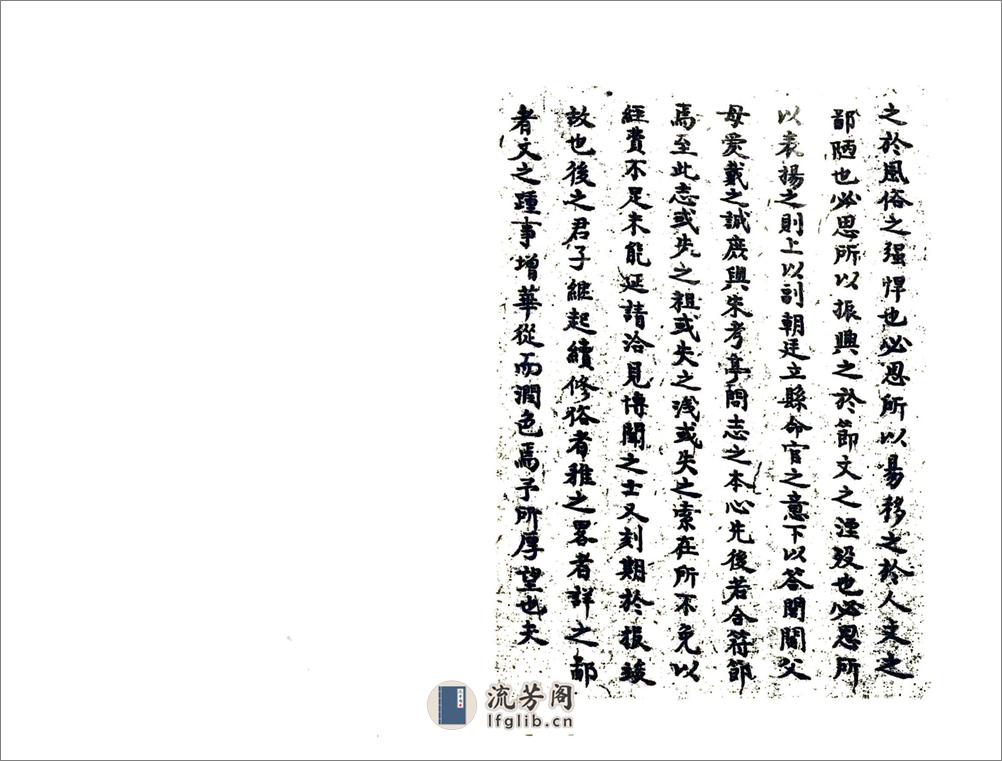 之於風俗之强悍也必思所以易移之於人文之
鄙陋也必思所以振興之於節文之湮没也必思所
以表揚之則上以副朝廷立縣命官之意下以答閭閻父
母爱戴之誠庶與朱考亭問志之本心先後若合符節
焉至此志或失之粗或失之浅或失之索在所不免以
經費不足未能延請洽見博聞之士又刻期於報竣
故也後之君子継起續修俗者雅之畧者詳之鄙
者文之踵事增華從而潤色焉予所厚望也夫
流芳阁
lfglib.cn